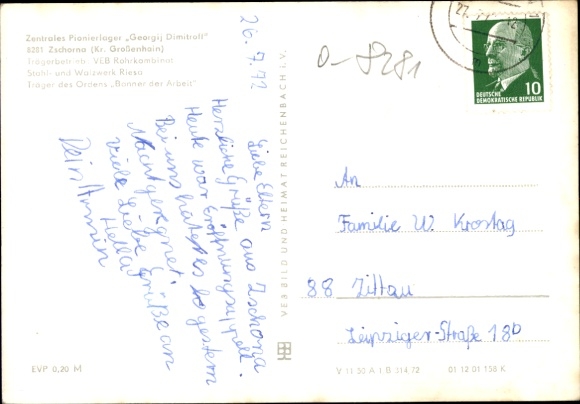 Zentrales Pionierlager „Georgij Dimitroff"
8281 Zschorna (Kr. Großenhain)
Trägerbetrieb VEB Rohrkombinat
Stahl- und Walzwerk Riesa
Träger des Ordens „Banner der Arbeit"
26.7.72
Liebe Eltern
Herzliche Grüße aus Zschorna
Heute war Eröffnungsappell.
Bei uns hat es bo gestern
geregnet.
Viele Liebe Grüße an
Hella
Dein Armin
EVP 0,20 M
VEB BILD UND HEIMAT REICHENBACH i. V.
0-8281
27. 7. 12
DEUTSCHE
DEMOKRATISCHE REPUBLIK
10
An
Familie W. Krostag
88 Zittau
Leipziger-Straße 18b
V 11 50 A 1 B 314 72
01 12 01 158 K